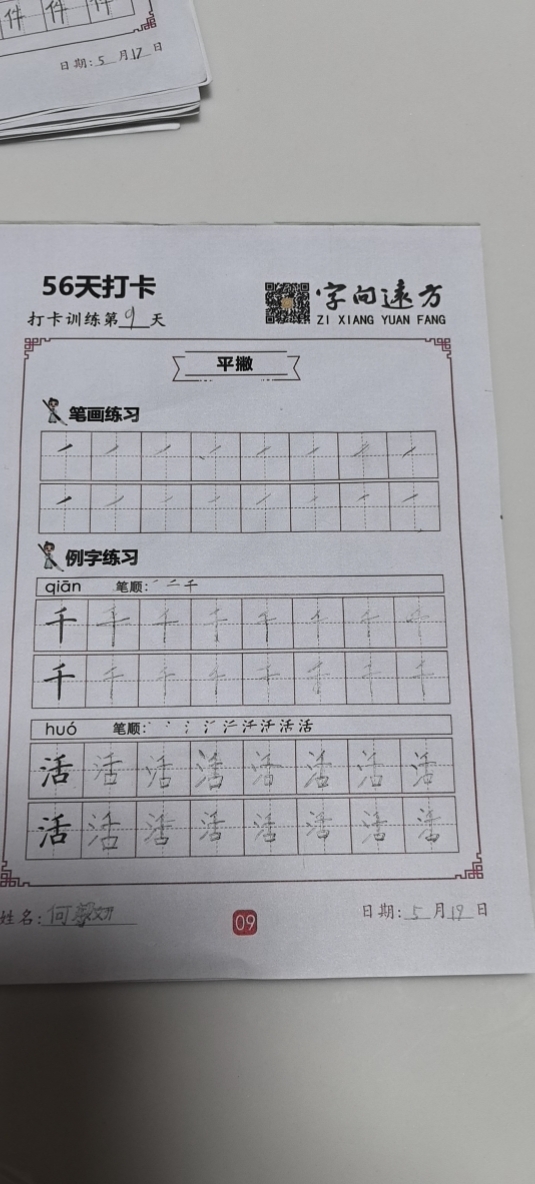 件 件 件
日期:5月17日
56天打卡
打卡训练第9天
字向远方
ZI XIANG YUAN FANG
平撇
笔画练习
例字练习
qiān 笔顺: 丿 二 千
千 千 千 千 千 千 千 千
千 千 千 千 千 千 千 千
huó 笔顺: 活
活 活 活 活 活 活 活 活
活 活 活 活 活 活 活 活
姓名:何
09
日期:5月19日